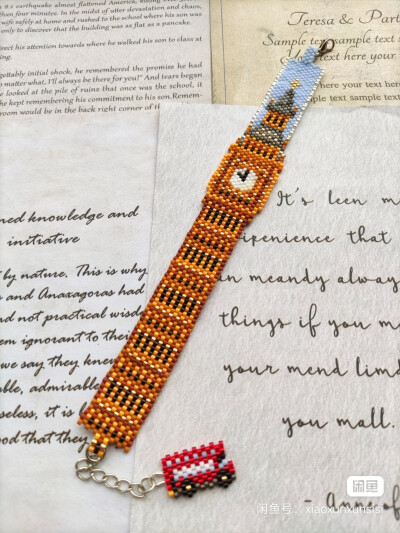 it's earthquake almost flattened America, killing over
than four minutes. In the midst of utter devastation and chaos,
wife safely at home and rushed to the school where his son was
only to discover that the building was as flat as a pancake.
direct his attention towards where he walked his son to class at
initial shock, he remembered the promise he had
matter what, I'll always be there for you!" And tears began
he looked at the pile of ruins that once was the school, it
he kept remembering his commitment to his son. Remem-
room would be in the back right corner of
Teresa & Part
Sample text sample text
text here your
here your text
ned knowledge and
initiative
by nature. This is why
and Anaxagoras had
nd not practical wisd
em ignorant to their
we say they know
ble, admirable
seless, it is
ood that they
It's leen m
ipenience that
in meandy alway
things if you m
your mend limd
you mall.
- Anne of
闲鱼
闲鱼号：xiaoxunxunsisi